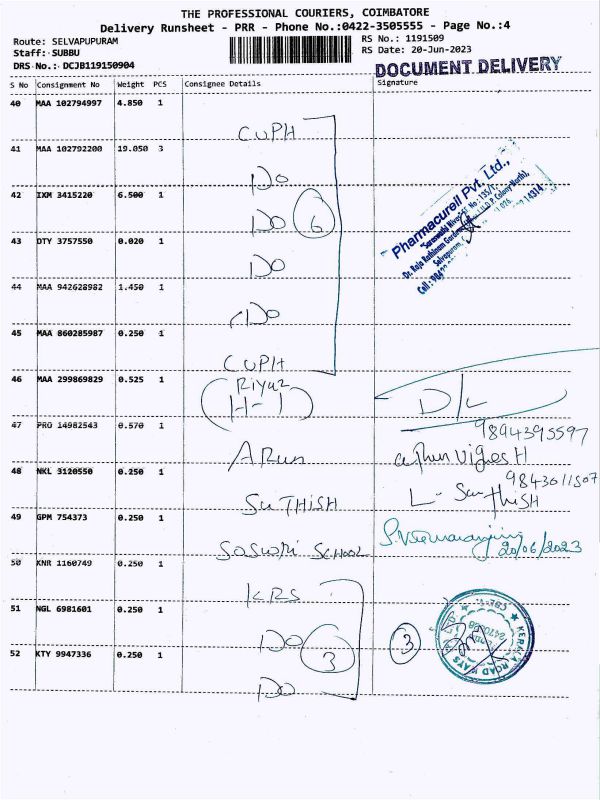 THE PROFESSIONAL COURIERS, COIMBATORE
Delivery Runsheet - PRR - Phone No.:0422-3505555 - Page No.:4
Route: SELVAPUPURAM
Staff: SUBBU
DRS No.: DCJB119150904
RS No.: 1191509
RS Date: 20-Jun-2023
DOCUMENT DELIVERY
S No Consignment No Weight PCS Consignee Details Signature
40 MAA 102794997 4.850 1
CUPH
41 MAA 102792200 19.050 3
Do
42 IXM 3415220 6.500 1
Do 6
43 DTY 3757550 0.020 1
Do
44 MAA 942628982 1.450 1
Do
45 MAA 860285987 0.250 1
CUPH
Pharmacurell Pvt. Ltd.,
46 MAA 299869829 0.525 1
Riyaz
H-1
D/L
47 PRO 14982543 0.570 1
9894395597
ARun
48 NKL 3120550 0.250 1
9843011507
SuTHISH
49 GPM 754373 0.250 1
20/06/2023
SCHOOL
50 KNR 1160749 0.250 1
KRS
51 NGL 6981601 0.250 1
Do 3
3
52 KTY 9947336 0.250 1
Do
KERALA ROAD WAYS